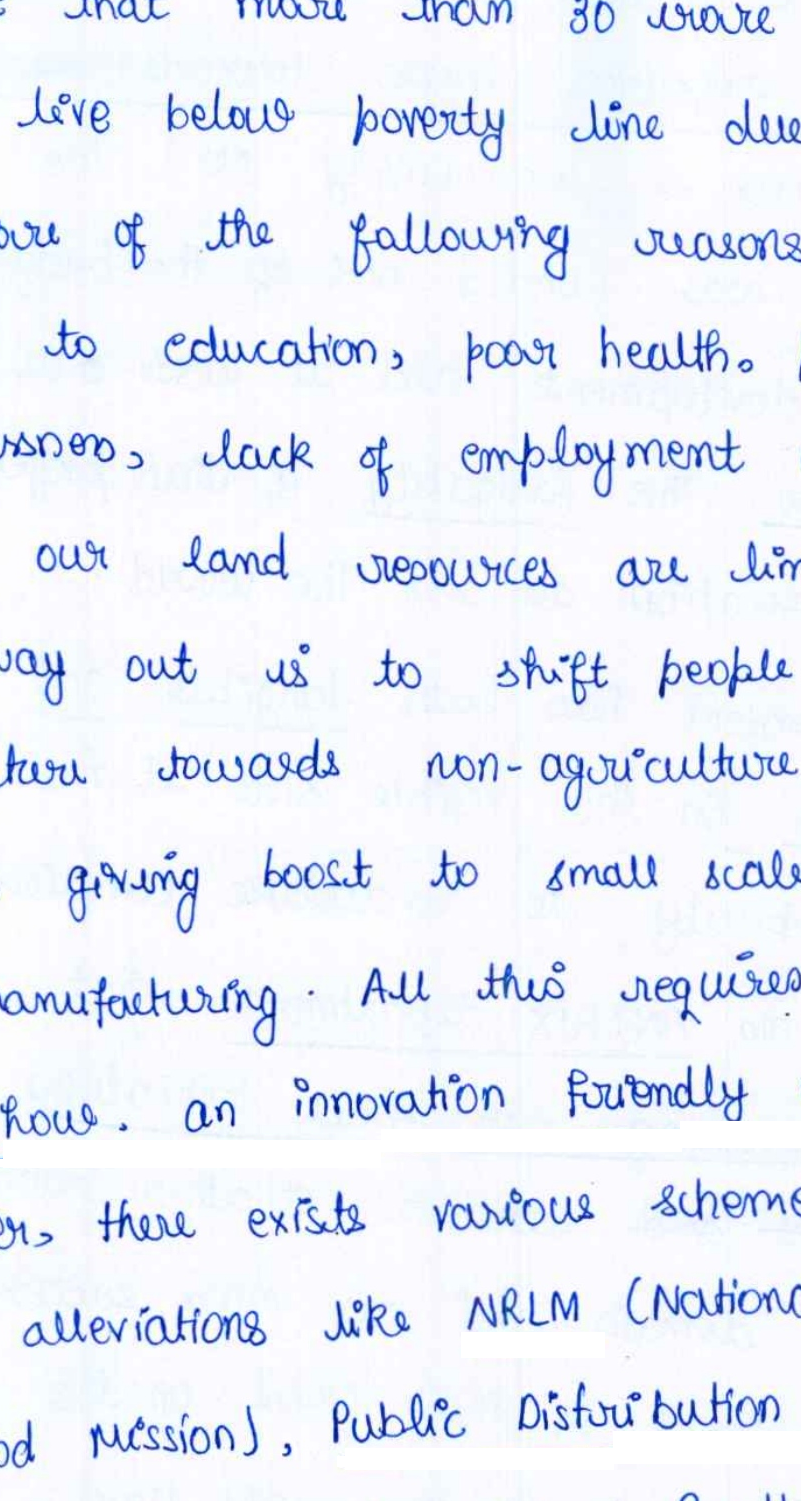 that more than 30 crore
live below poverty line due
of the fallowing reasons
to education, poor health.
lack of employment
our land resources are lim
way out is to shift people
towards non-agriculture
giving boost to small scale
anufacturing. All this requires
how. an innovation friendly
er, there exists various scheme
alleviations like NRLM (Nationa
od Mission), Public Distribution